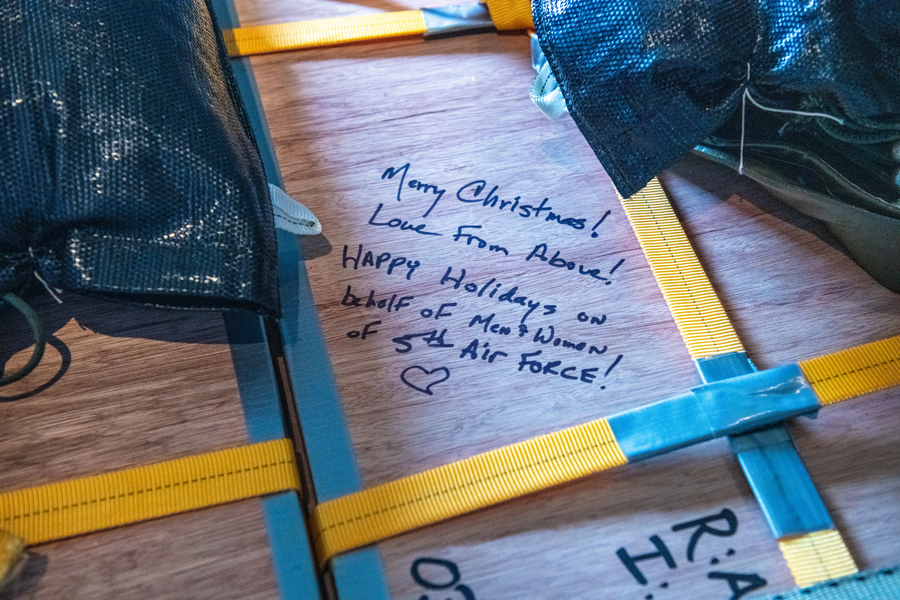 Merry Christmas!
Love From Above!
HAPPY Holidays on
behalf of Men & Women
of 5th Air FORCE!
R:A
I: